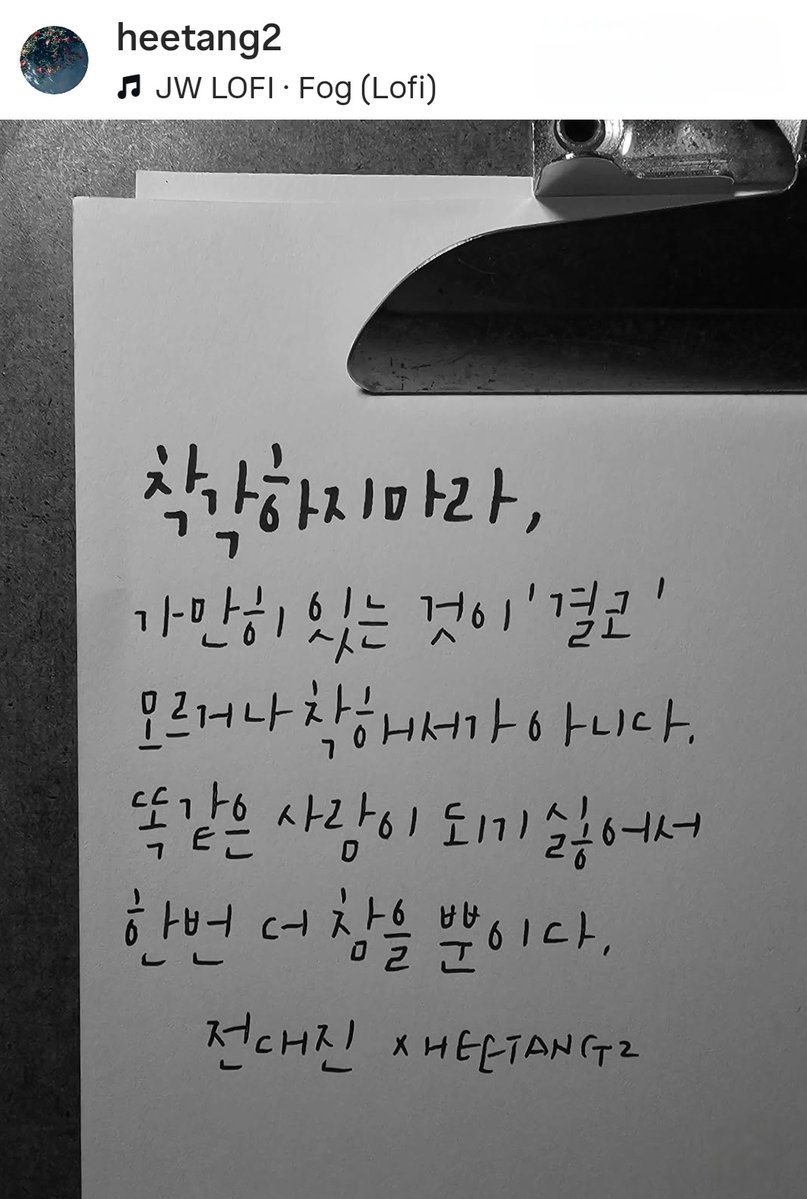 heetang2
JW LOFI · Fog (Lofi)
착각하지마라,
가만히 있는 것이 '결코'
모르거나 착해서가 아니다.
똑같은 사람이 되기 싫어서
한번 더 참을 뿐이다.
전대진 × HEETANG2